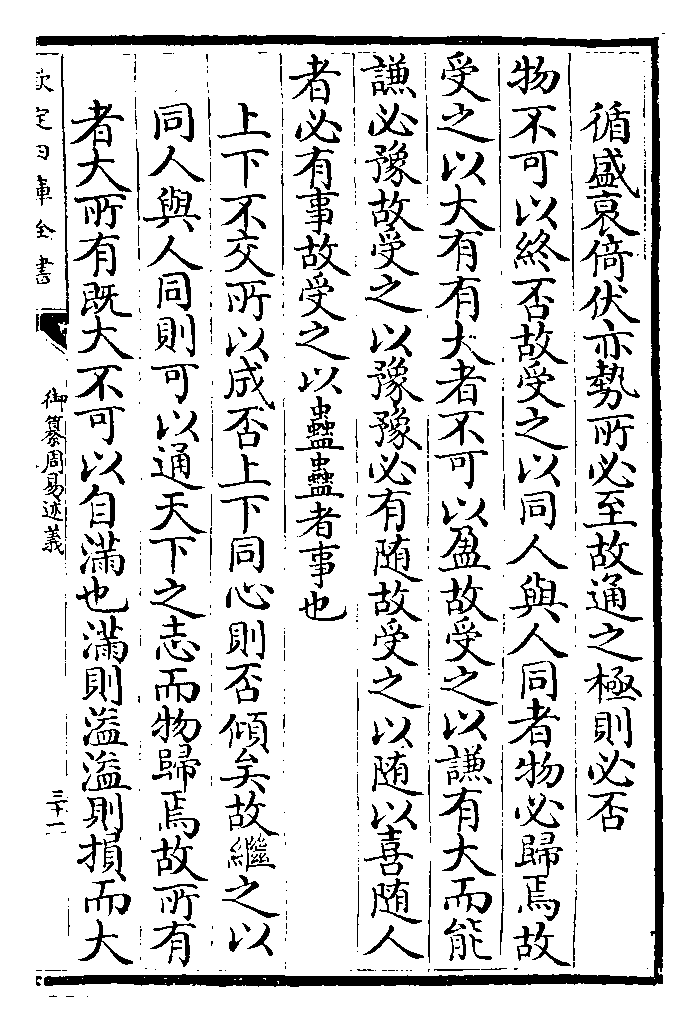 循盛衰倚伏亦勢所必至故通之極則必否
物不可以終否故受之以同人與人同者物必歸焉故
受之以大有有大者不可以盈故受之以謙有大而能
謙必豫故受之以豫豫必有随故受之以随以喜随人
者必有事故受之以蠱蠱者事也
上下不交所以成否上下同心則否傾矣故繼之以
同人與人同則可以通天下之志而物歸焉故所有
者大所有既大不可以自滿也滿則溢溢則損而大
欽定四庫全書
御纂周易述義
三十二